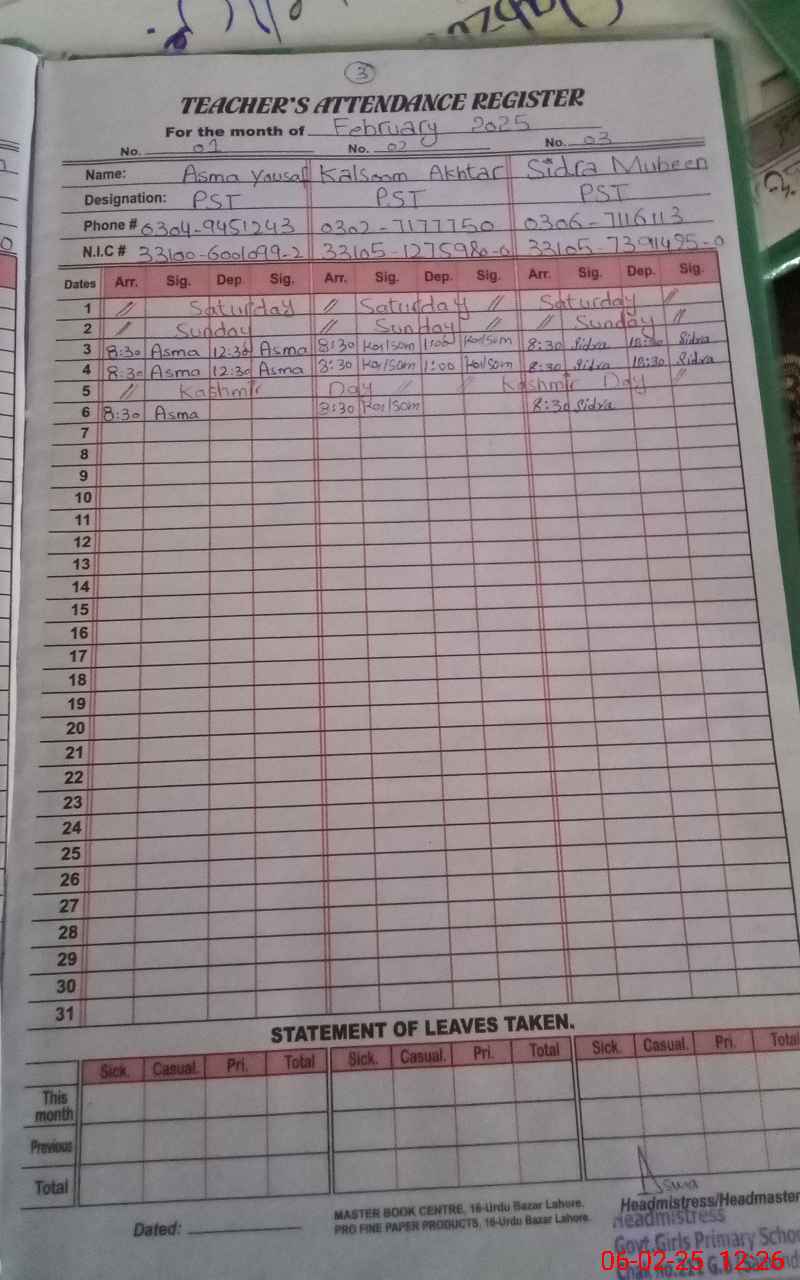 3
TEACHER'S ATTENDANCE REGISTER
For the month of February 2025
No. 01 No. 02 No. 03
Name: Asma Yousaf Kalsoom Akhtar Sidra Mubeen
Designation: PST PST PST
Phone # 0304-9451243 0302-7177750 0306-7116113
N.I.C # 33100-6001099-2 33105-1275980-0 33105-7391495-0
Dates Arr. Sig. Dep. Sig. Arr. Sig. Dep. Sig. Arr. Sig. Dep. Sig.
1 // Saturday // Saturday // Saturday //
2 // Sunday // Sunday // // Sunday //
3 8:30 Asma 12:30 Asma 8:30 Kalsom 1:00 Kalsom 8:30 Sidra Sidra
4 8:30 Asma 12:30 Asma 8:30 Kalsom 1:00 Kalsom 8:30 Sidra Sidra
5 // Kashmir Day // // Kashmir Day //
6 8:30 Asma 8:30 Kalsom 8:30 Sidra
7
8
9
10
11
12
13
14
15
16
17
18
19
20
21
22
23
24
25
26
27
28
29
30
31
STATEMENT OF LEAVES TAKEN.
Sick. Casual. Pri. Total Sick. Casual. Pri. Total Sick. Casual. Pri. Total
This month
Previous
Total
Asma
Headmistress/Headmaster
MASTER BOOK CENTRE, 16-Urdu Bazar Lahore.
Dated: PRO FINE PAPER PRODUCTS, 16-Urdu Bazar Lahore.
Headmistress
Govt. Girls Primary School
06-02-25 12:26